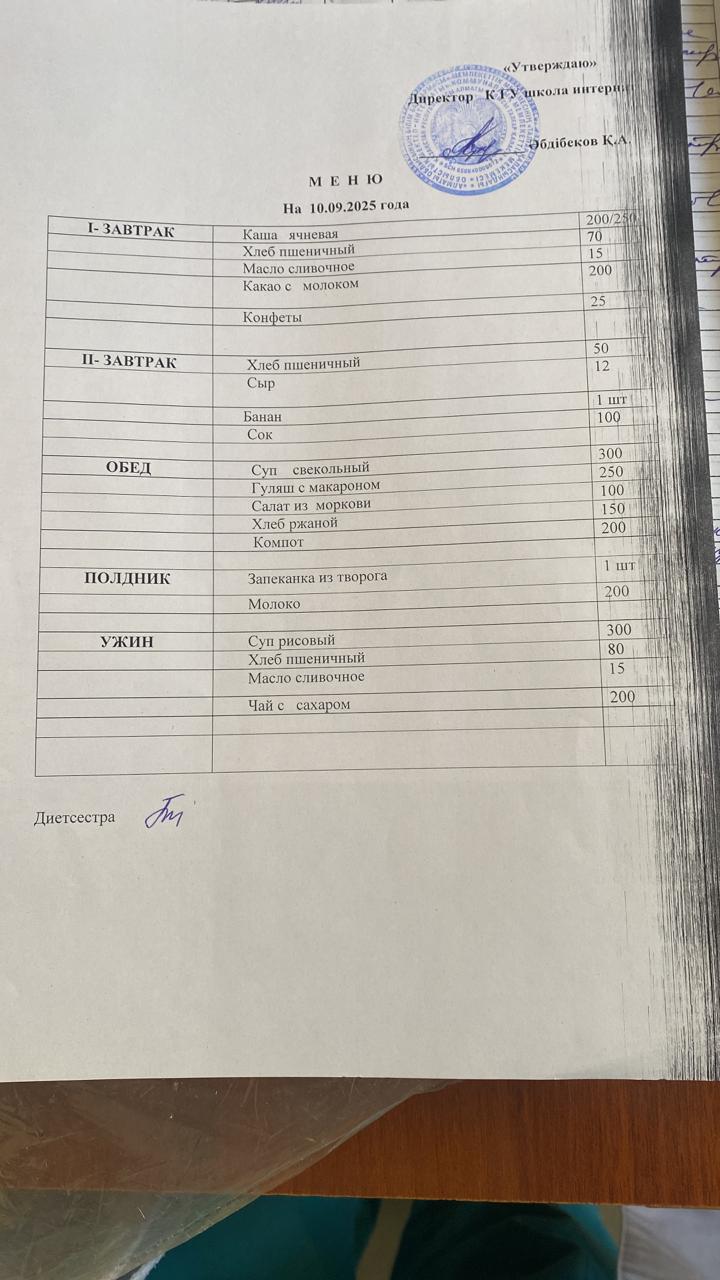 «Утверждаю»
Директор КГУ школа интерн
Әбдібеков Қ.А.
М Е Н Ю
На 10.09.2025 года
I- ЗАВТРАК Каша ячневая 200/250
Хлеб пшеничный 70
Масло сливочное 15
Какао с молоком 200
Конфеты 25
II- ЗАВТРАК Хлеб пшеничный 50
Сыр 12
Банан 1 шт
Сок 100
ОБЕД Суп свекольный 300
Гуляш с макароном 250
Салат из моркови 100
Хлеб ржаной 150
Компот 200
ПОЛДНИК Запеканка из творога 1 шт
Молоко 200
УЖИН Суп рисовый 300
Хлеб пшеничный 80
Масло сливочное 15
Чай с сахаром 200
Диетсестра